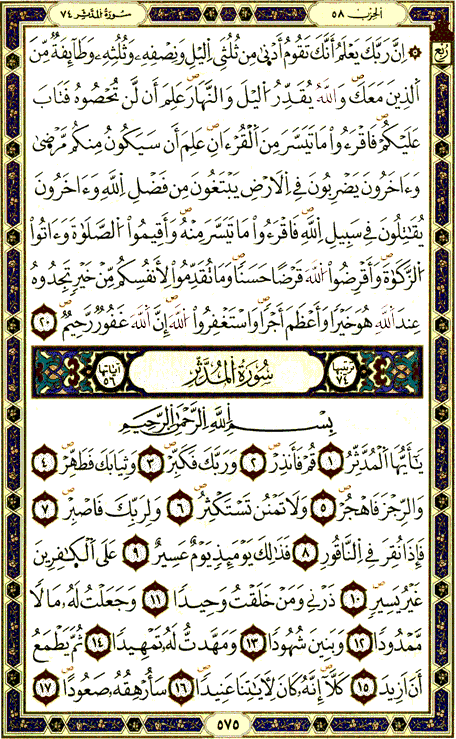 سورة المدثر ٧٤
الحزب ٥٨
ربع
۞ إِنَّ رَبَّكَ يَعْلَمُ أَنَّكَ تَقُومُ أَدْنَىٰ مِن ثُلُثَيِ ٱلَّيْلِ وَنِصْفَهُۥ وَثُلُثَهُۥ وَطَآئِفَةٌ مِّنَ
ٱلَّذِينَ مَعَكَ وَٱللَّهُ يُقَدِّرُ ٱلَّيْلَ وَٱلنَّهَارَ عَلِمَ أَن لَّن تُحْصُوهُ فَتَابَ
عَلَيْكُمْ فَٱقْرَءُوا۟ مَا تَيَسَّرَ مِنَ ٱلْقُرْءَانِ عَلِمَ أَن سَيَكُونُ مِنكُم مَّرْضَىٰ
وَءَاخَرُونَ يَضْرِبُونَ فِى ٱلْأَرْضِ يَبْتَغُونَ مِن فَضْلِ ٱللَّهِ وَءَاخَرُونَ
يُقَٰتِلُونَ فِى سَبِيلِ ٱللَّهِ فَٱقْرَءُوا۟ مَا تَيَسَّرَ مِنْهُ وَأَقِيمُوا۟ ٱلصَّلَوٰةَ وَءَاتُوا۟
ٱلزَّكَوٰةَ وَأَقْرِضُوا۟ ٱللَّهَ قَرْضًا حَسَنًا وَمَا تُقَدِّمُوا۟ لِأَنفُسِكُم مِّنْ خَيْرٍ تَجِدُوهُ
عِندَ ٱللَّهِ هُوَ خَيْرًا وَأَعْظَمَ أَجْرًا وَٱسْتَغْفِرُوا۟ ٱللَّهَ إِنَّ ٱللَّهَ غَفُورٌ رَّحِيمٌ ٢٠
ترتيبها ٧٤ سُورَةُ الْمُدَّثِّرِ آياتها ٥٦
بِسْمِ ٱللَّهِ ٱلرَّحْمَٰنِ ٱلرَّحِيمِ
يَٰٓأَيُّهَا ٱلْمُدَّثِّرُ ١ قُمْ فَأَنذِرْ ٢ وَرَبَّكَ فَكَبِّرْ ٣ وَثِيَابَكَ فَطَهِّرْ ٤
وَٱلرُّجْزَ فَٱهْجُرْ ٥ وَلَا تَمْنُن تَسْتَكْثِرُ ٦ وَلِرَبِّكَ فَٱصْبِرْ ٧
فَإِذَا نُقِرَ فِى ٱلنَّاقُورِ ٨ فَذَٰلِكَ يَوْمَئِذٍ يَوْمٌ عَسِيرٌ ٩ عَلَى ٱلْكَٰفِرِينَ
غَيْرُ يَسِيرٍ ١٠ ذَرْنِى وَمَنْ خَلَقْتُ وَحِيدًا ١١ وَجَعَلْتُ لَهُۥ مَالًا
مَّمْدُودًا ١٢ وَبَنِينَ شُهُودًا ١٣ وَمَهَّدتُّ لَهُۥ تَمْهِيدًا ١٤ ثُمَّ يَطْمَعُ
أَنْ أَزِيدَ ١٥ كَلَّآ إِنَّهُۥ كَانَ لِءَايَٰتِنَا عَنِيدًا ١٦ سَأُرْهِقُهُۥ صَعُودًا ١٧
٥٧٥